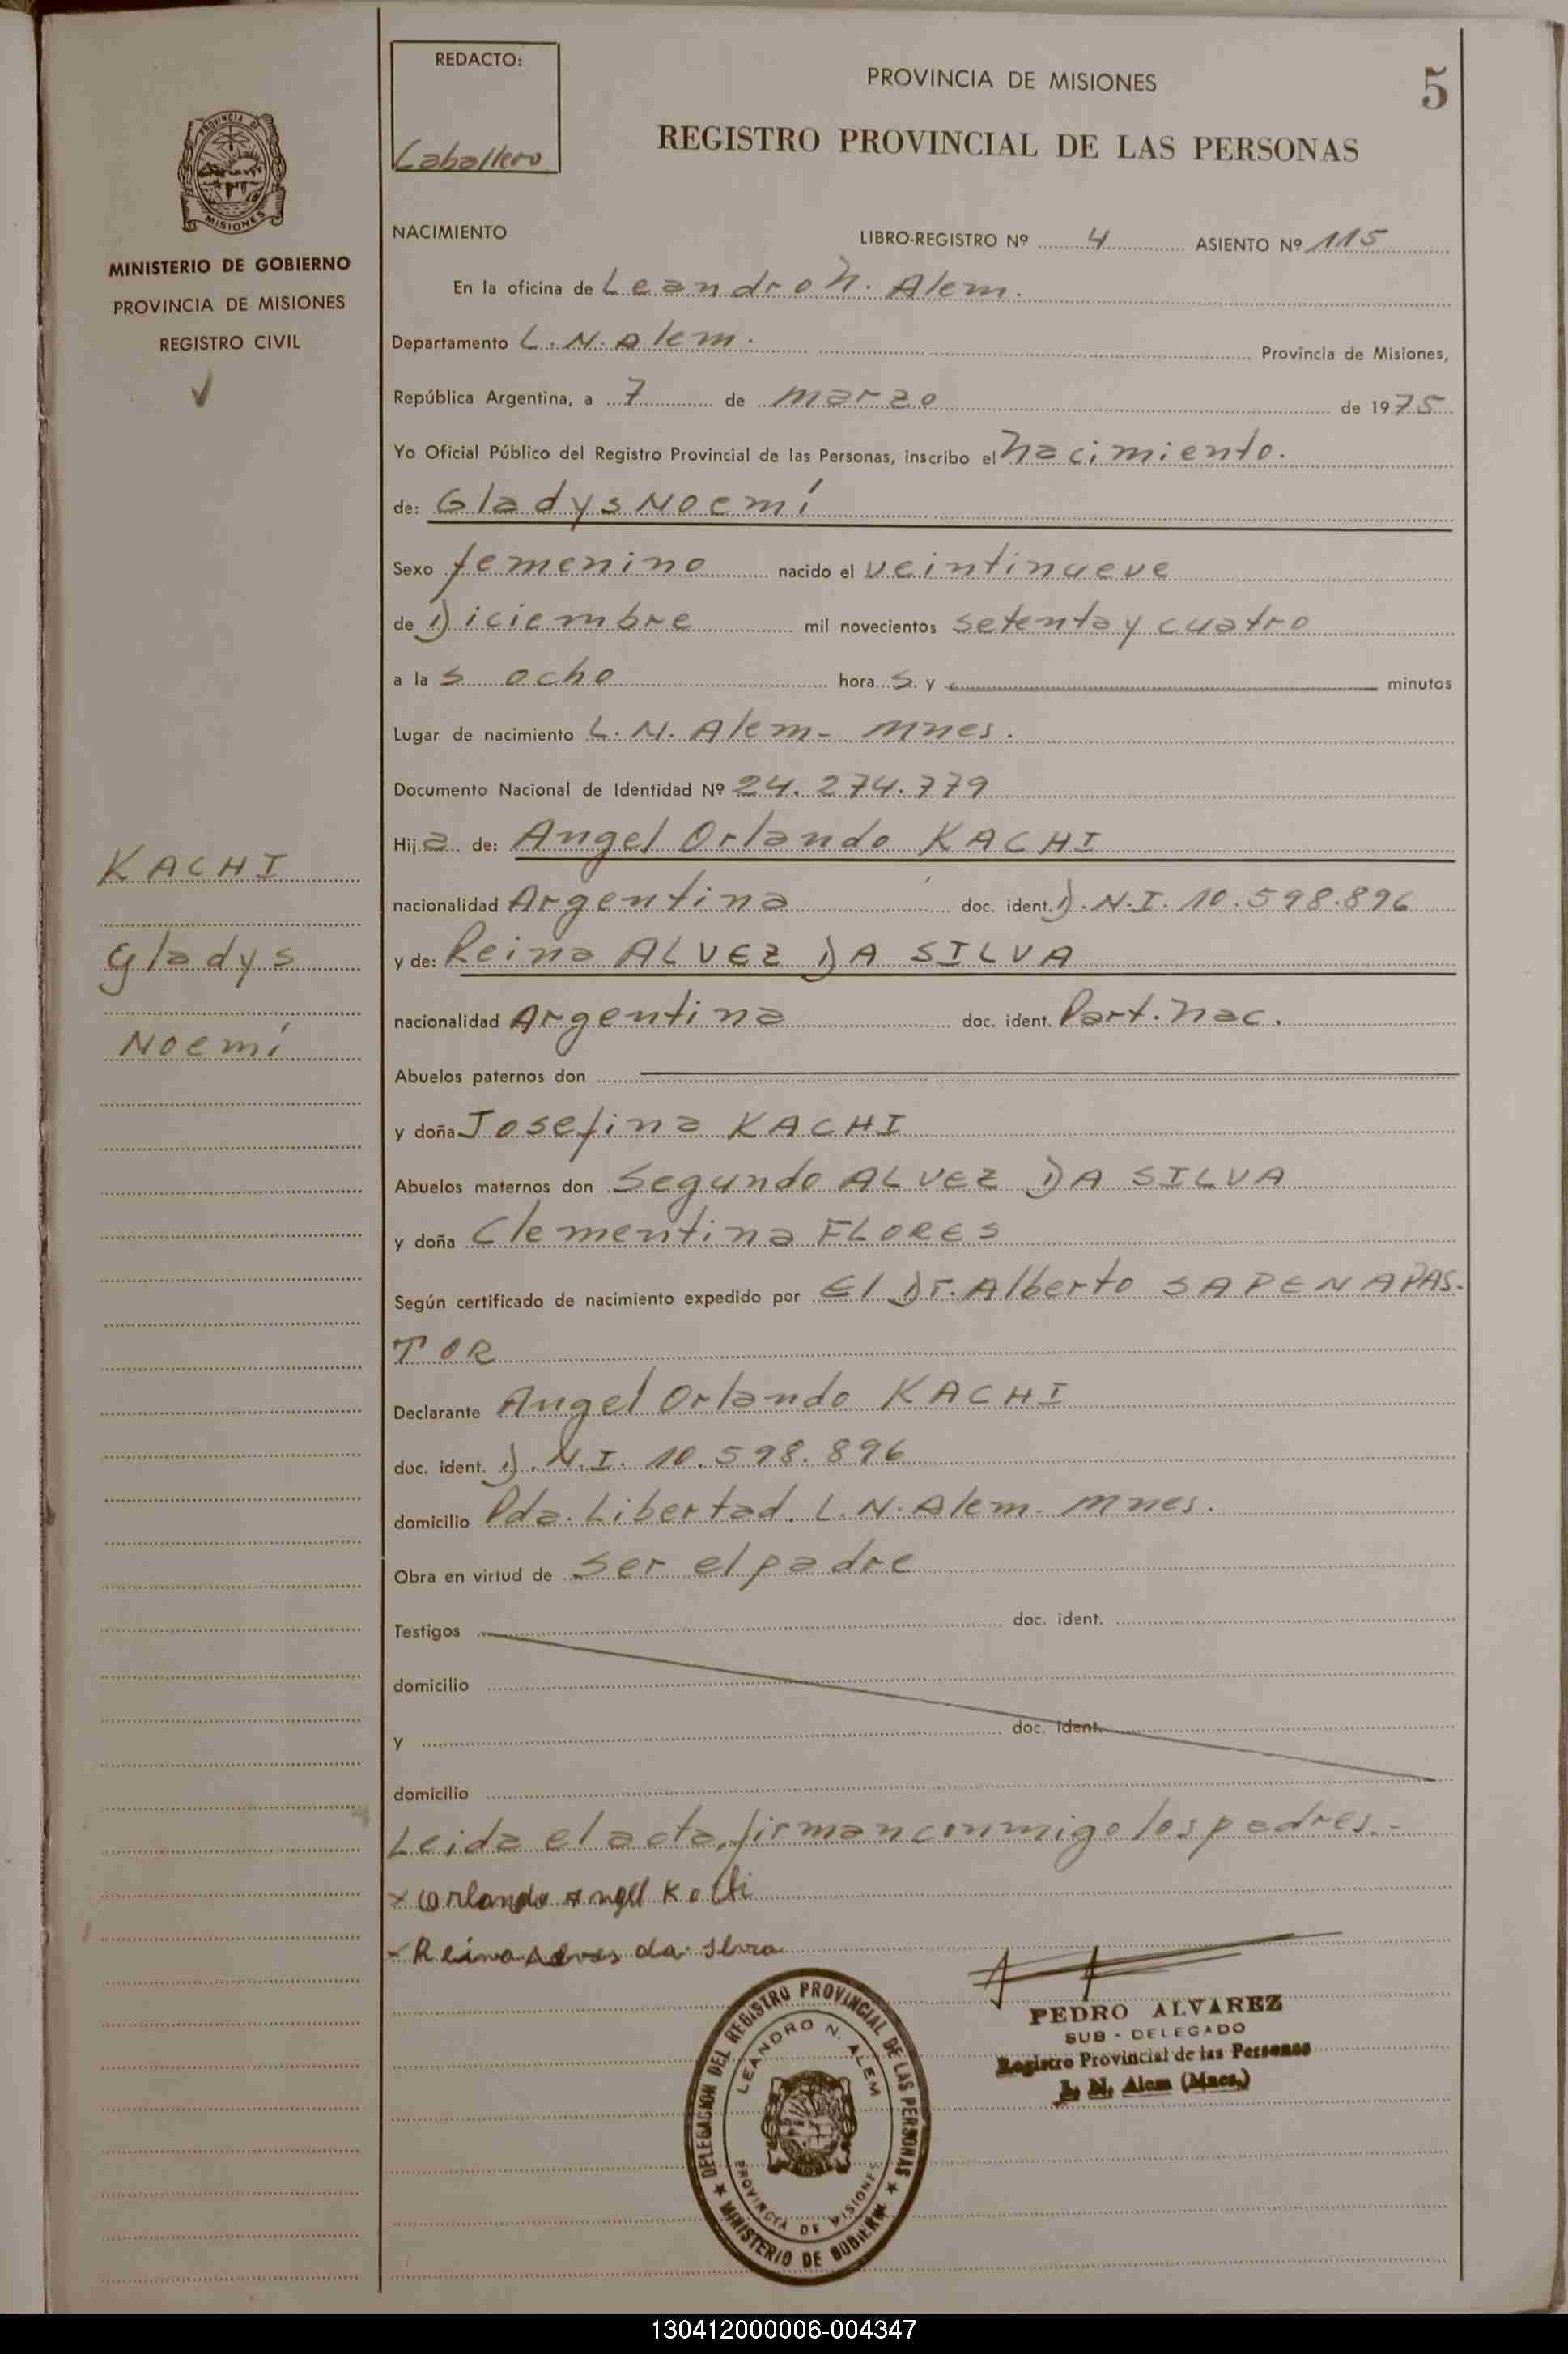 REDACTO:
Caballero
PROVINCIA DE MISIONES
5
REGISTRO PROVINCIAL DE LAS PERSONAS
PROVINCIA DE
MISIONES
MINISTERIO DE GOBIERNO
PROVINCIA DE MISIONES
REGISTRO CIVIL
KACHI
Gladys
Noemí
NACIMIENTO LIBRO-REGISTRO Nº 4 ASIENTO Nº 115
En la oficina de Leandro N. Alem.
Departamento L. N. Alem. Provincia de Misiones,
República Argentina, a 7 de marzo de 1975
Yo Oficial Público del Registro Provincial de las Personas, inscribo el nacimiento.
de: Gladys Noemí
Sexo femenino nacido el veintinueve
de Diciembre mil novecientos setenta y cuatro
a las ocho horas y minutos
Lugar de nacimiento L. N. Alem- Mnes.
Documento Nacional de Identidad Nº 24.274.779
Hija de: Angel Orlando KACHI
nacionalidad Argentina doc. ident. D.N.I. 10.598.896
y de: Reina ALVEZ DA SILVA
nacionalidad Argentina doc. ident. Part. Nac.
Abuelos paternos don
y doña Josefina KACHI
Abuelos maternos don Segundo ALVEZ DA SILVA
y doña Clementina FLORES
Según certificado de nacimiento expedido por El Dr. Alberto SAPENA PAS-
TOR
Declarante Angel Orlando KACHI
doc. ident. D.N.I. 10.598.896
domicilio Pda. Libertad. L. N. Alem- Mnes.
Obra en virtud de ser el padre
Testigos doc. ident.
domicilio
y doc. ident.
domicilio
Leida el acta, firman conmigo los padres.-
x Orlando Angel
x Reina da
PEDRO ALVAREZ
SUB - DELEGADO
Registro Provincial de las Personas
L. N. Alem (Mnes.)
DELEGACION DEL REGISTRO PROVINCIAL DE LAS PERSONAS
LEANDRO N. ALEM
PROVINCIA DE MISIONES
MINISTERIO DE GOBIERNO
130412000006-004347